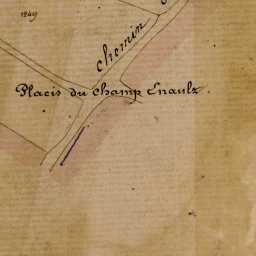 1249
chemin
Placis du champ Enaulx.